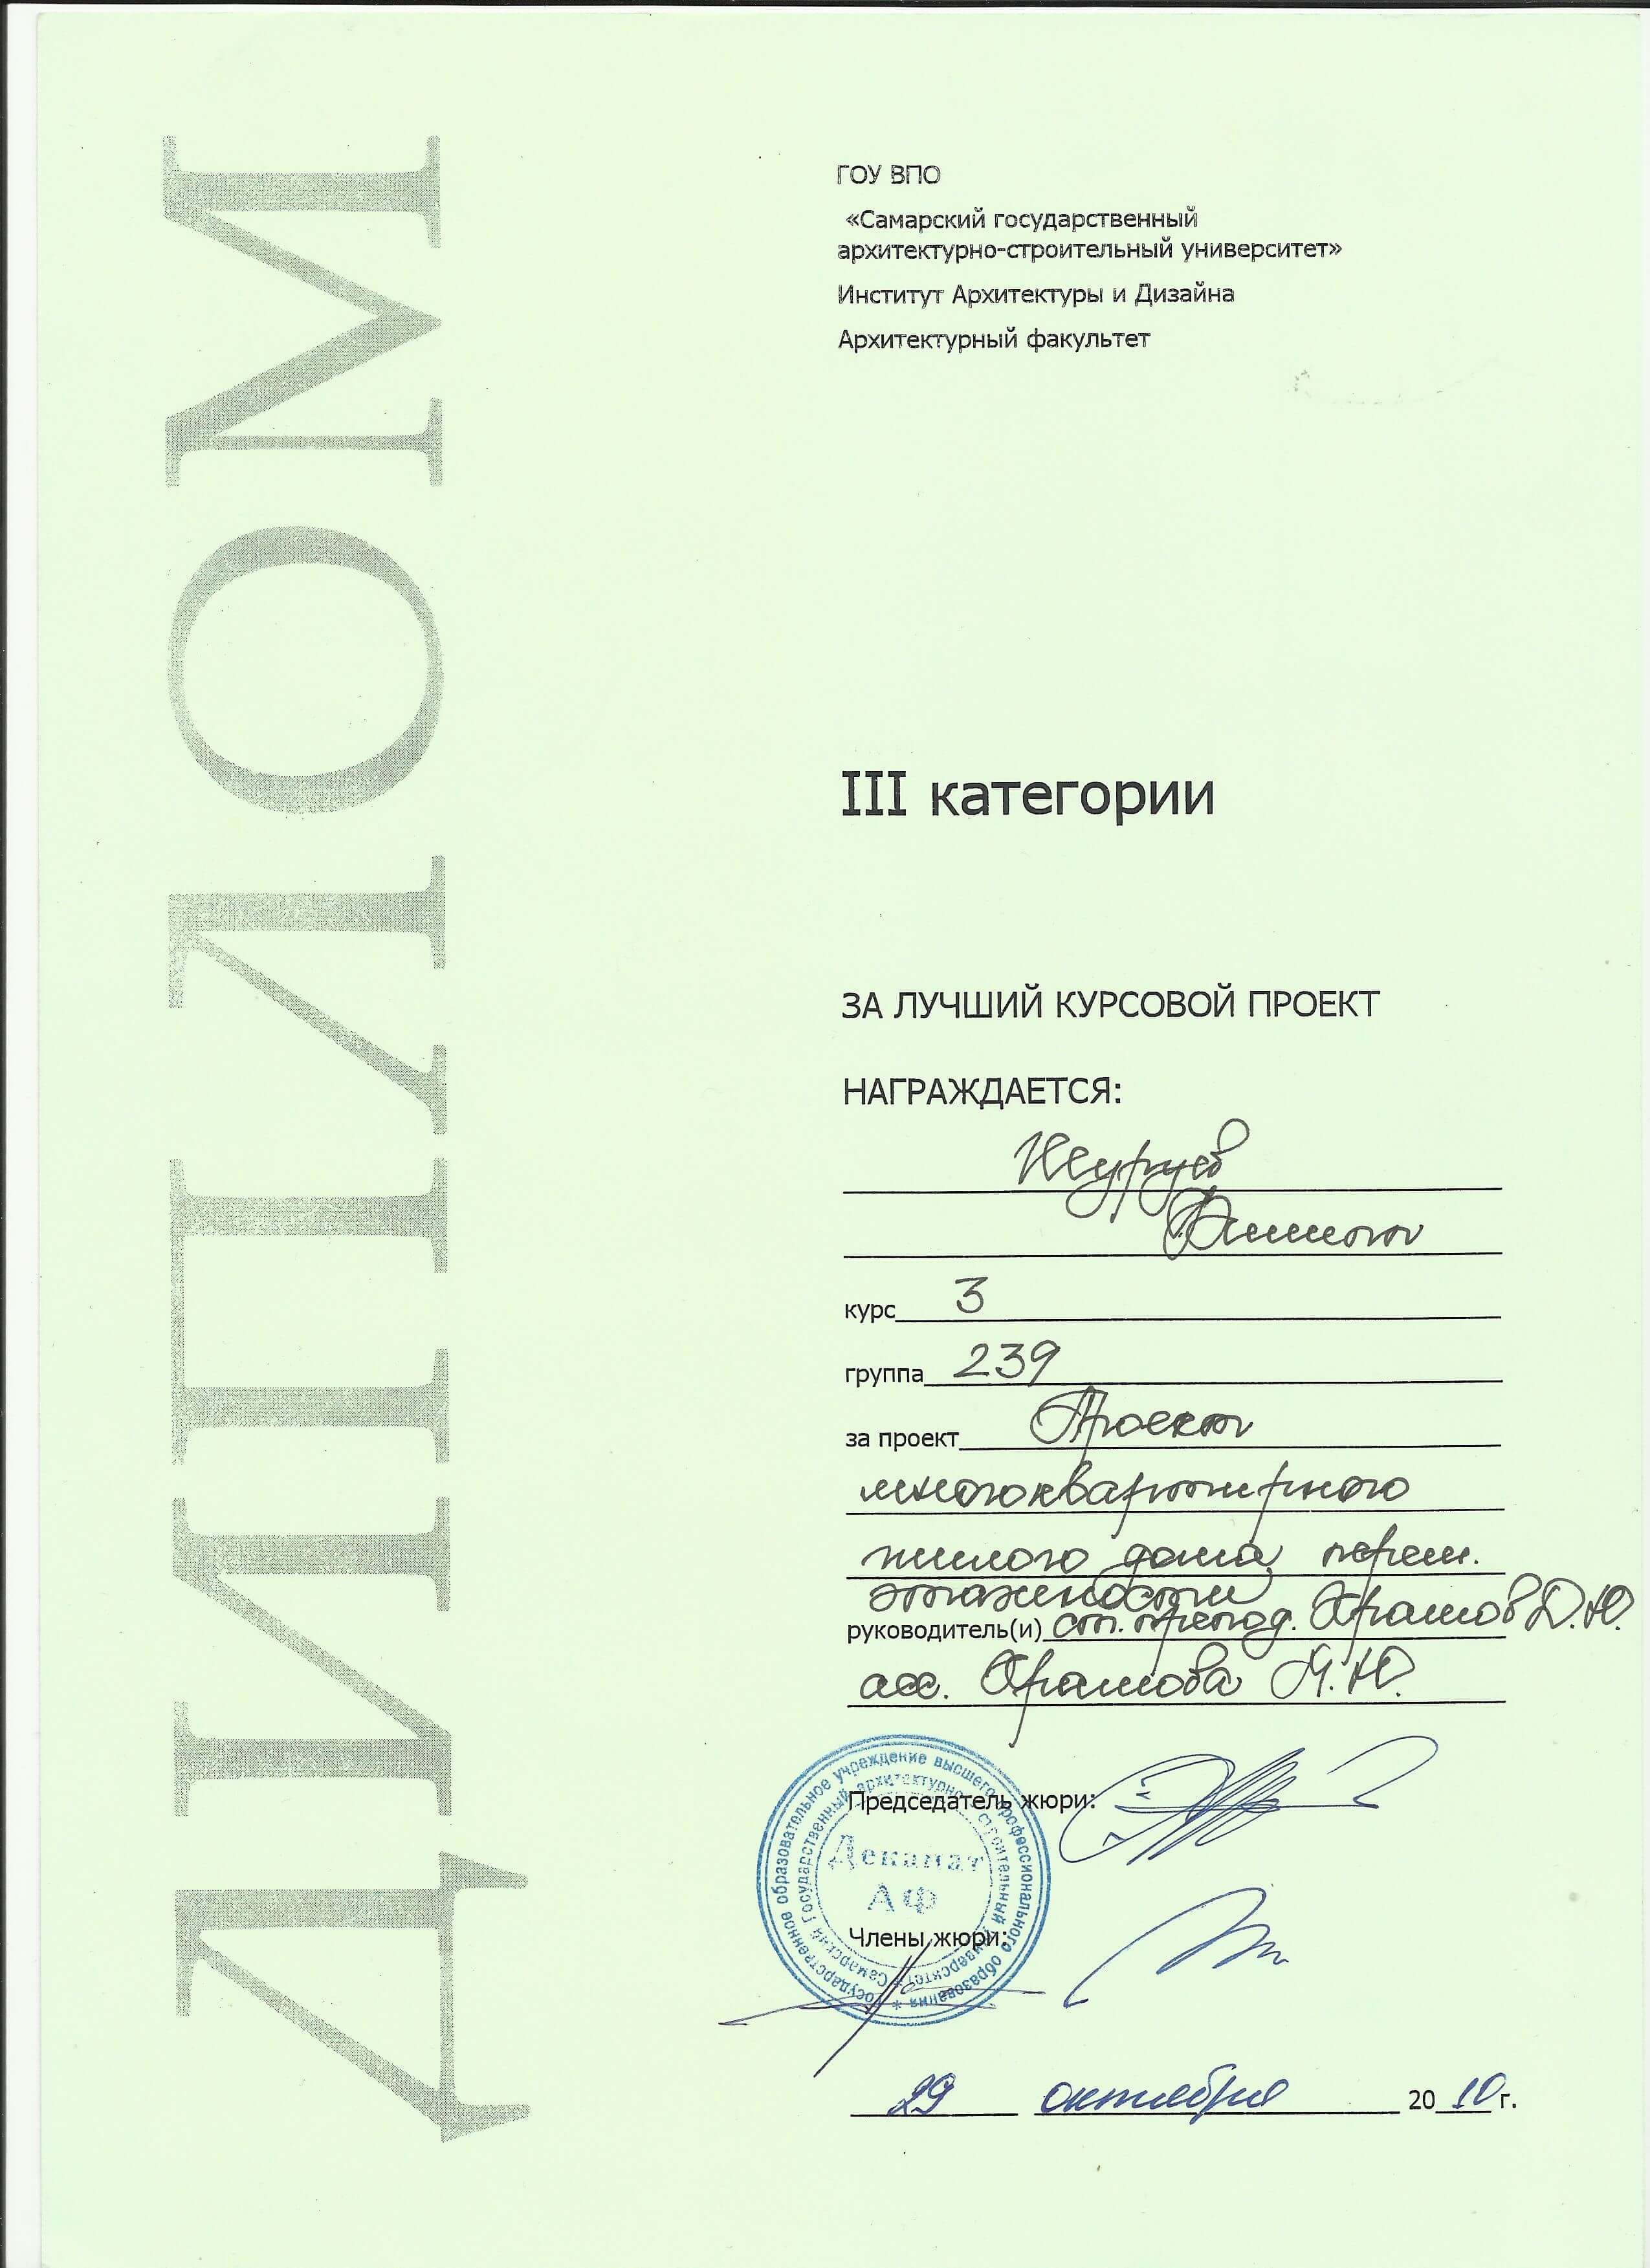 ДИПЛОМ
ГОУ ВПО
«Самарский государственный
архитектурно-строительный университет»
Институт Архитектуры и Дизайна
Архитектурный факультет
III категории
ЗА ЛУЧШИЙ КУРСОВОЙ ПРОЕКТ
НАГРАЖДАЕТСЯ:
курс 3
группа 239
за проект Проект
многоквартирного
жилого дома перем.
этажности
руководитель(и) ст. препод. Храмов Д.Ю.
асс. Храмова М.Ю.
Государственное образовательное учреждение высшего профессионального образования *
Самарский Государственный архитектурно-строительный университет *
Деканат
АФ
Председатель жюри:
Члены жюри:
29 октября 2010 г.